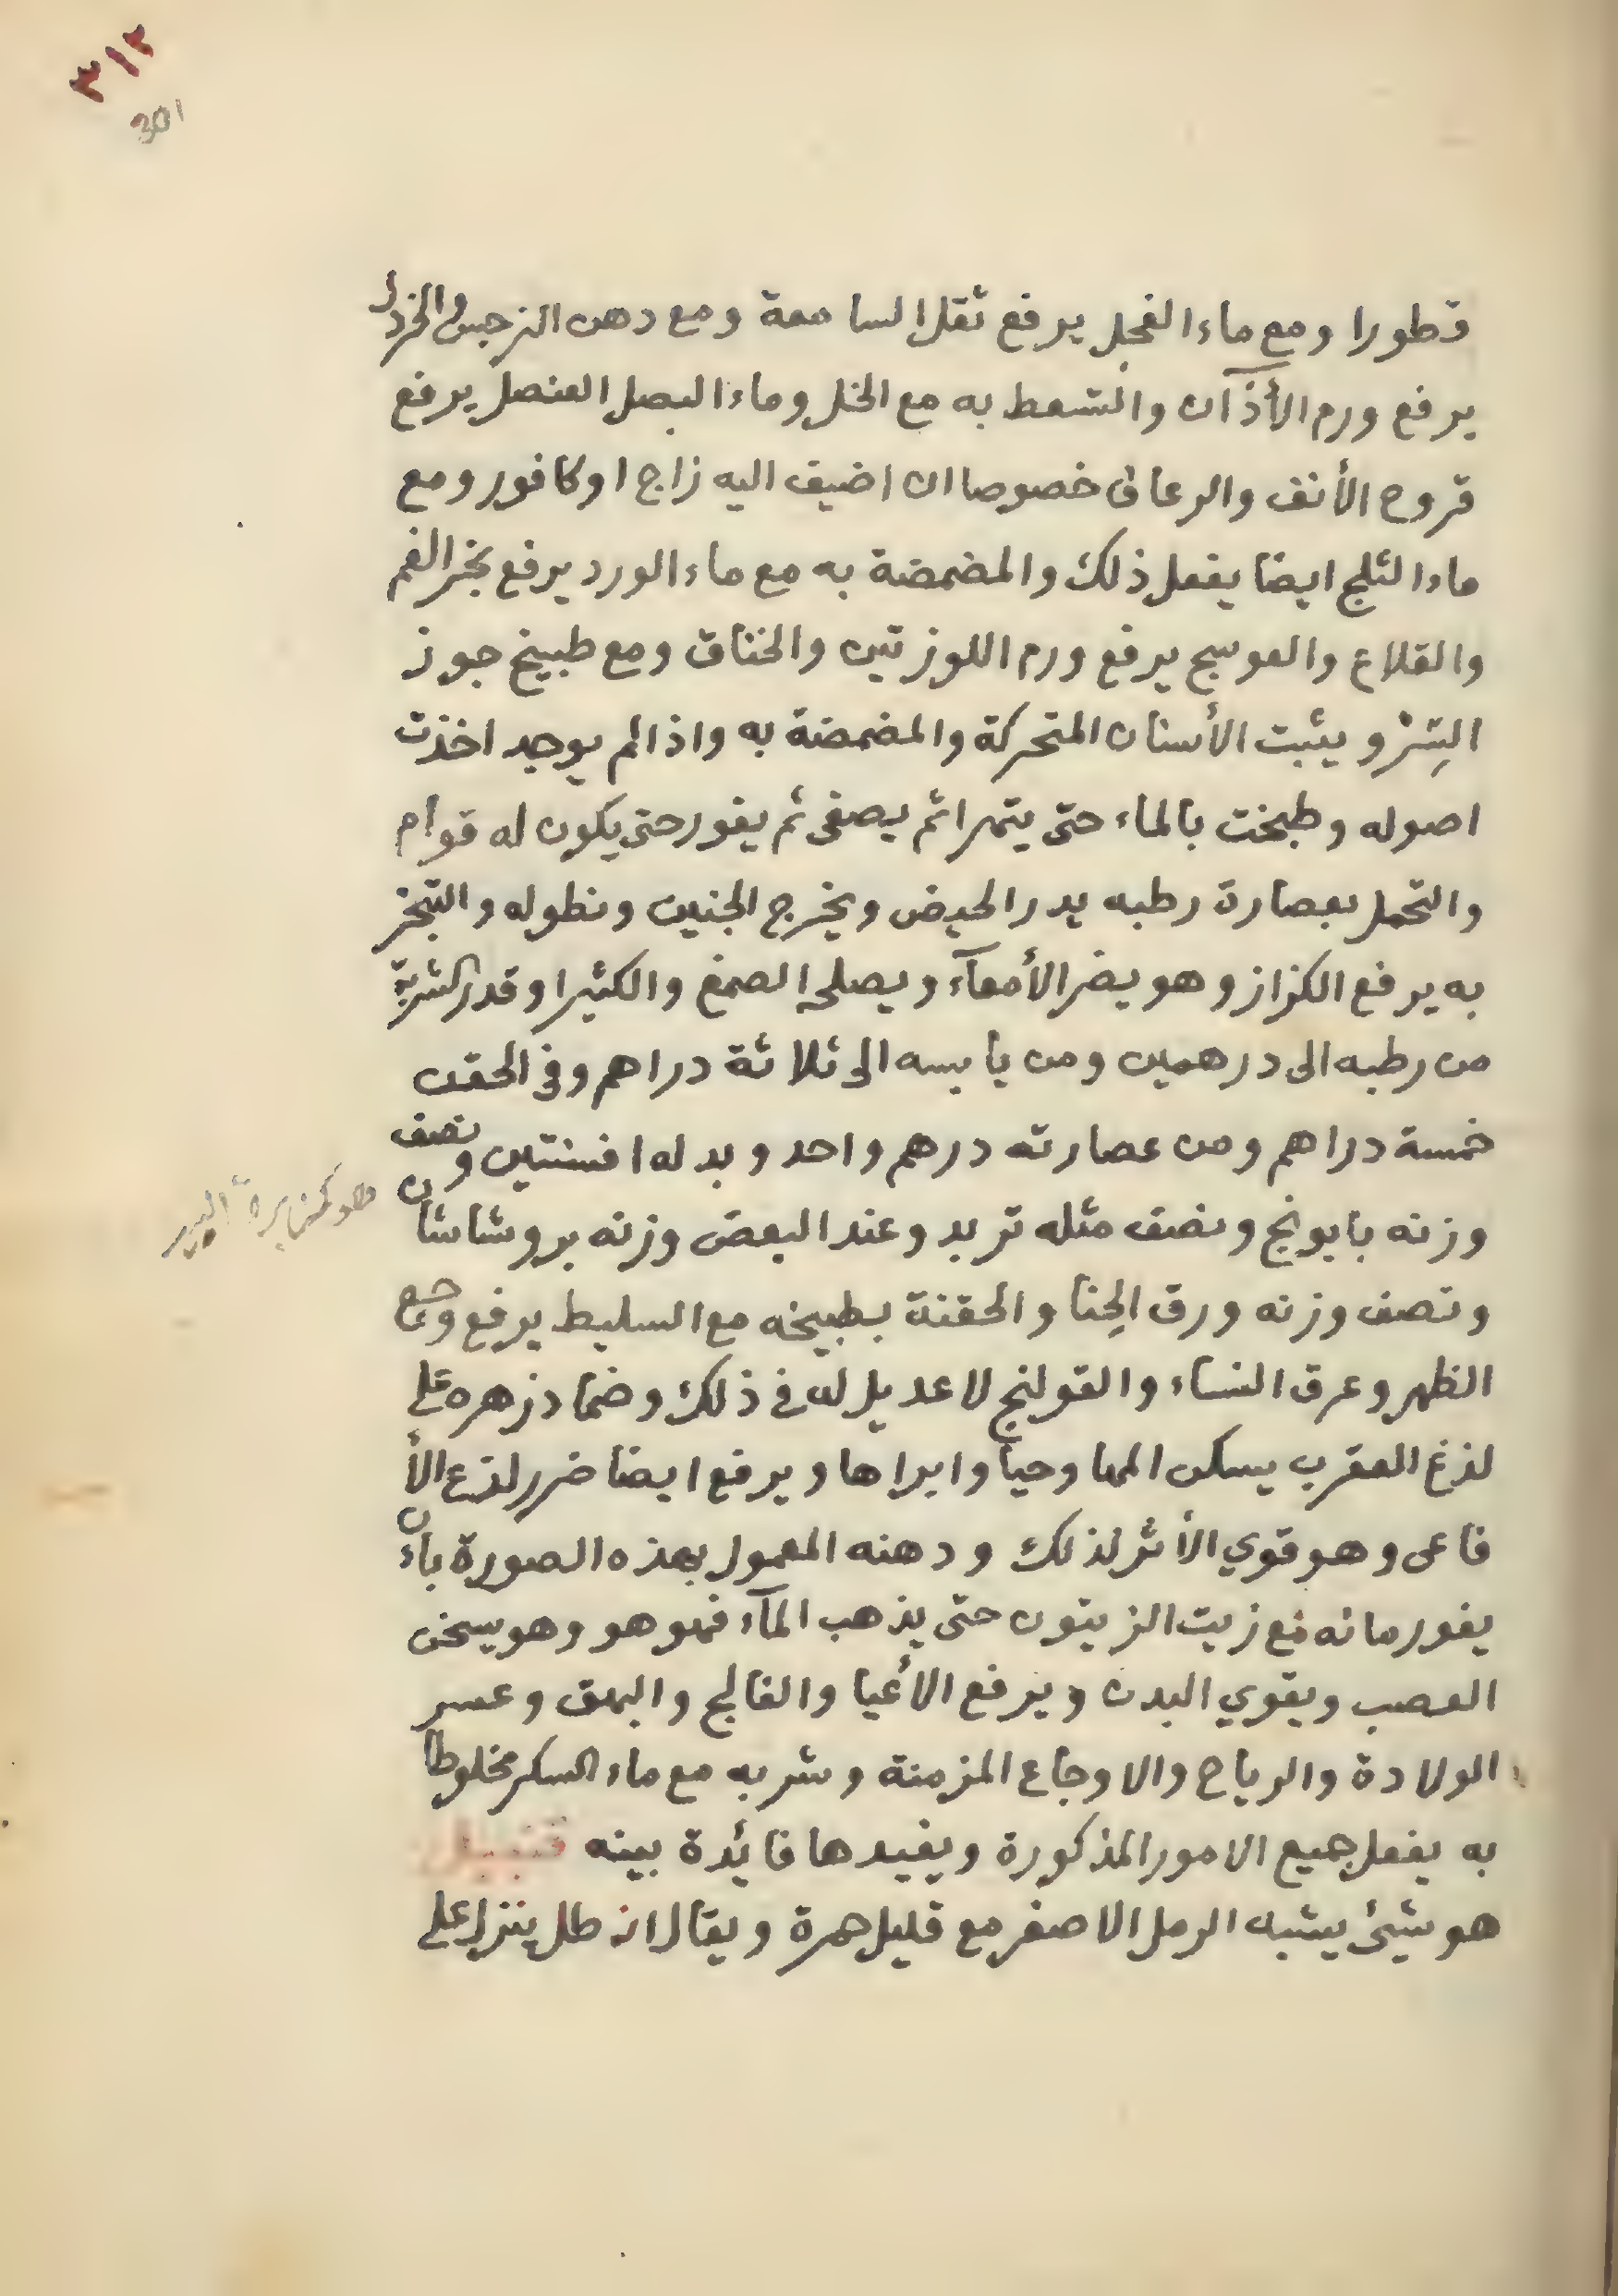 ٣١٢
301
قطورا ومع ماء الفجل يرفع ثقل السامعة ومع دهن النرجس والخردل
يرفع ورم الأذآن والتسعط به مع الخل وماء البصل العنصل يرفع
قروح الأنف والرعاف خصوصا ان اضيف اليه زاج او كافور ومع
ماء الثلج ايضا يفعل ذلك والمضمضة به مع ماء الورد يرفع بخر الفم
والقلاع والعوسج يرفع ورم اللوزتين والخناق ومع طبيخ جوز
السرو يثبت الأسنان المتحركة والمضمضة به واذا لم يوجد اخذت
اصوله وطبخت بالماء حتى يتهرا ثم يصفى ثم يفور حتى يكون له قوام
والتحمل بعصارة رطبه يدر الحيض ويخرج الجنين ونطوله والتبخر
به يرفع الكزاز وهو يضر الأمعآء ويصلحه الصمغ والكثيرا وقدر الشربة
من رطبه الى درهمين ومن يابسه الى ثلاثة دراهم وفي الحقن
خمسة دراهم ومن عصارته درهم واحد وبدله افسنتين ونصف
وزنه بابونج ونصف مثله تربد وعند البعض وزنه بروشاشان
هو كزبرة البير
ونصف وزنه ورق الحِنا والحقنة بطبيخه مع السليط يرفع وجع
الظهر وعرق النساء والقولنج لا عديل له في ذلك وضماد زهره على
لذغ العقرب يسكن المها وحيا وابراها ويرفع ايضا ضرر لذع الأ
فاعى وهو قوي الأثر لذلك ودهنه المعمول بهذه الصورة بأن
يفور مائه مع زيت الزيتون حتى يذهب المآء فهو هو وهو يسخن
العصب ويقوي البدن ويرفع الأعيا والفالج والبهق وعسر
الولادة والرياح والاوجاع المزمنة وشربه مع ماء السكر مخلوطا
به يفعل جميع الامور المذكورة ويفيدها فائدة بينه قنبيل
هو شيئ يشبه الرمل الاصفر مع قليل حمرة ويقال انه طل ينزل على